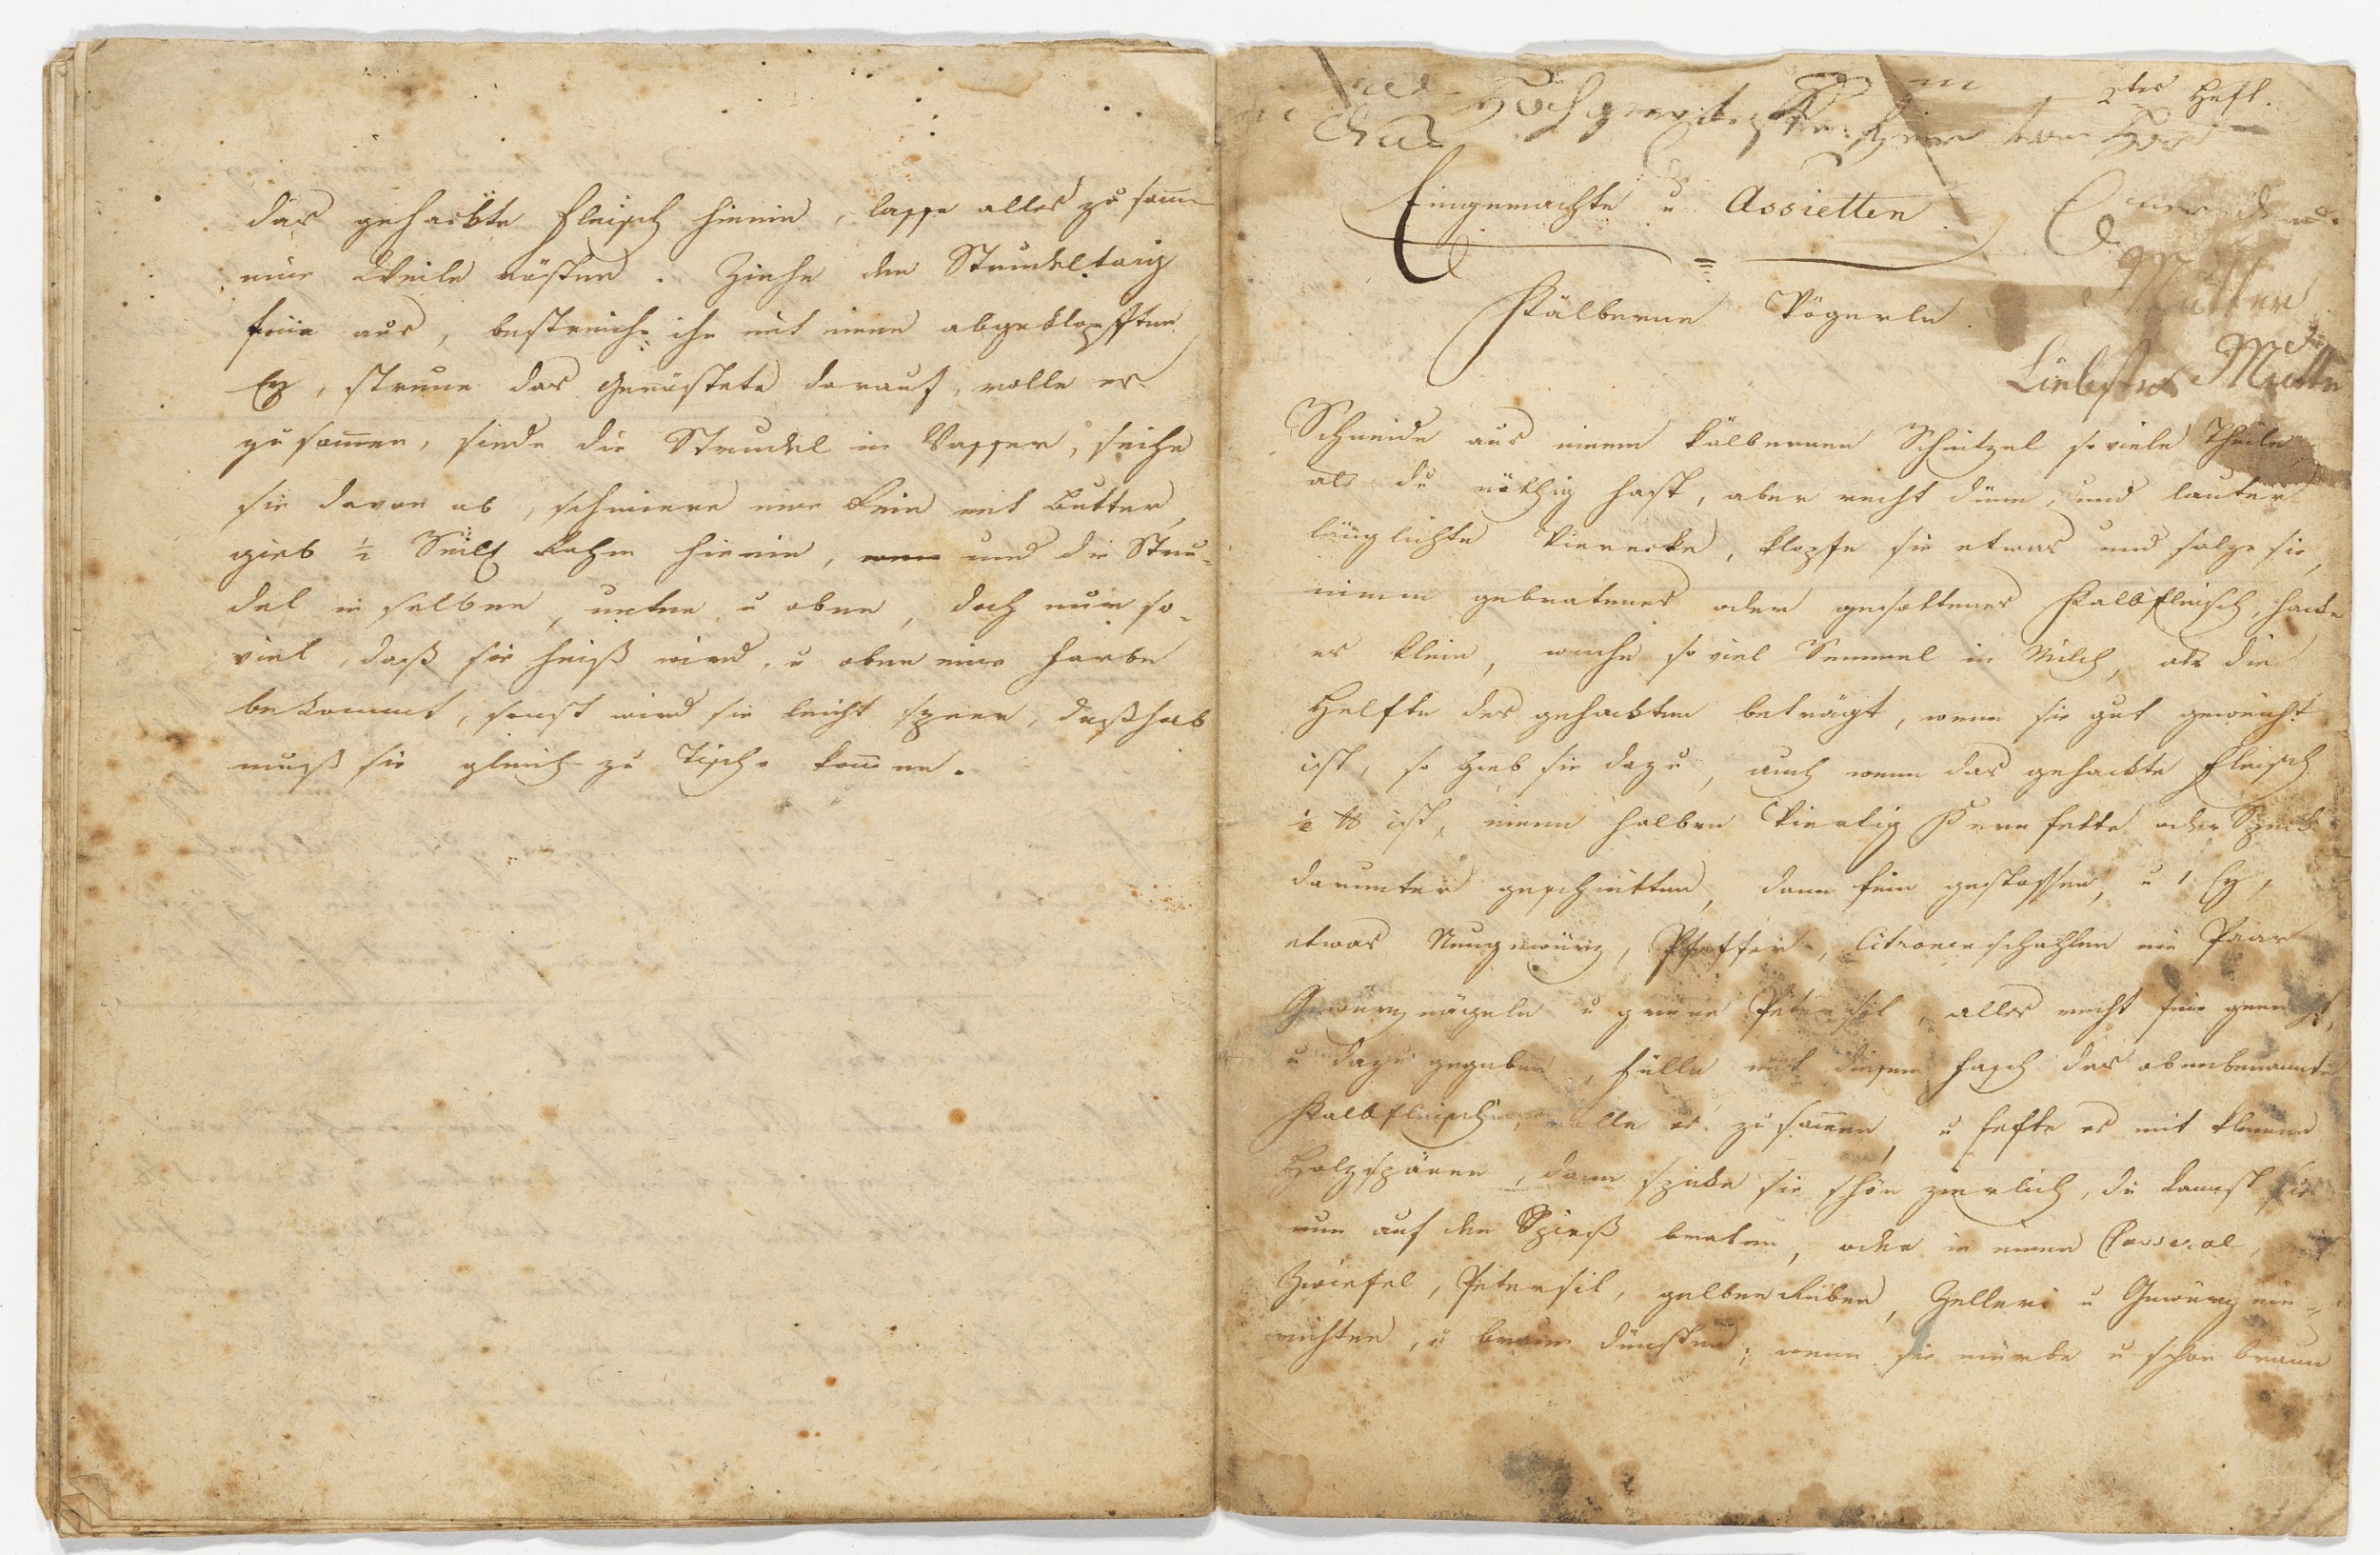 das gehackte Fleisch hinein, lasse alles zusam̅
eine Weile rösten. Ziehe den Strudeltaig
fein aus, bestreiche ihn mit einem abgeklopften
Ey, streue das Geröstete darauf, rolle es
zusam̅en, siede die Strudel in Wasser, seihe
sie davon ab, schmiere eine Rein mit Butter,
gieb ½ Seitl Rahm hinein, und die Stru-
del in selben, unten u oben, doch nur so-
viel, daß sie heiß wird, u oben eine Farbe
bekommt, sonst wird sie leicht speer, deßhalb
muß sie gleich zu Tische kom̅en.
2tes Heft.
Eingemachte u Assietten
Kälberne Vögerln
Mutter
Liebste Mutter
Schneide aus einem kälbernen Schnitzel so viele Theile
als du nöthig hast, aber recht dünn, und lauter
länglichte Vierecke, klopfe sie etwas und salze sie,
nimm gebratenes oder gesottenes Kalbfleisch, hacke
es klein, weiche so viel Semmel in Milch, als die
Helfte des gehackten beträgt, wenn sie gut geweicht
ist, so gieb sie dazu, auch wenn das gehackte Fleisch
½ ℔ ist, einen halben Vierling Kernfette oder Speck
darunter geschnitten, dann fein gestossen, u 1 Ey,
etwas Neugewürz, Pfeffer, Citronenschahlen ein Paar
Gewürznägeln u grüne Petersil, alles recht fein
u dazu gegeben, fülle mit diesem Fasch das obenbenannte
Kalbfleisch, rolle es zusam̅en, u hefte es mit kleinen
Holzspänen, dann spicke sie schön zierlich, du kannst sie
nun auf den Spieß braten, oder in einem Casserol,
Zwiefel, Petersil, gelben Rüben, Zelleri u Gewürz ein-
richten, u braun dünsten; wenn sie mürbe u schön braun